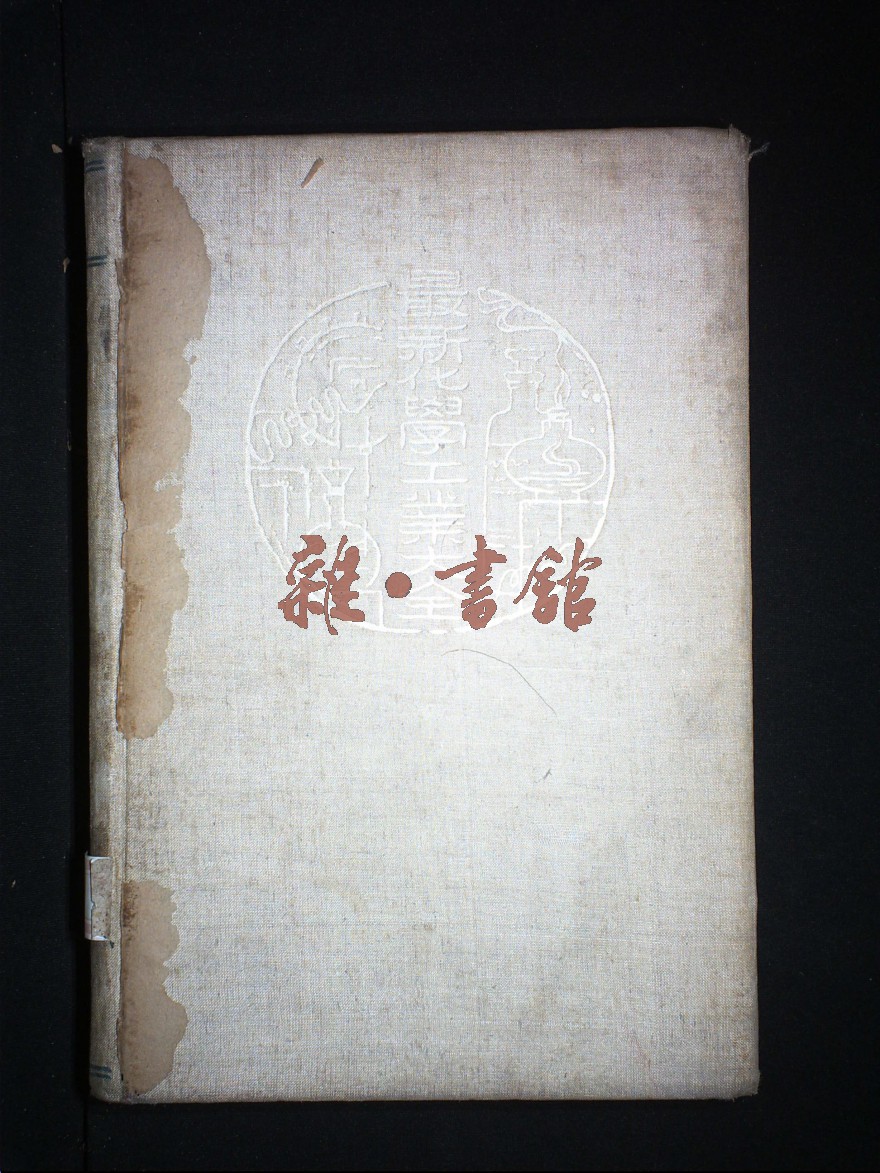 最新化學工業大全
雜·書館